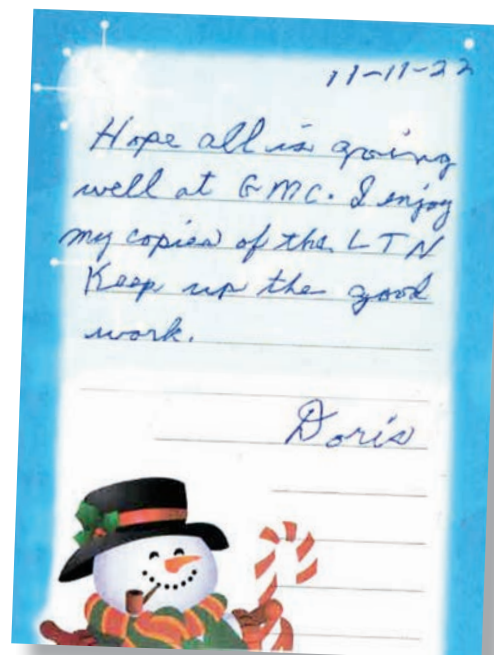 11-11-22
Hope all is going
well at GMC. I enjoy
my copies of the LTN
Keep up the good
work.
Doris